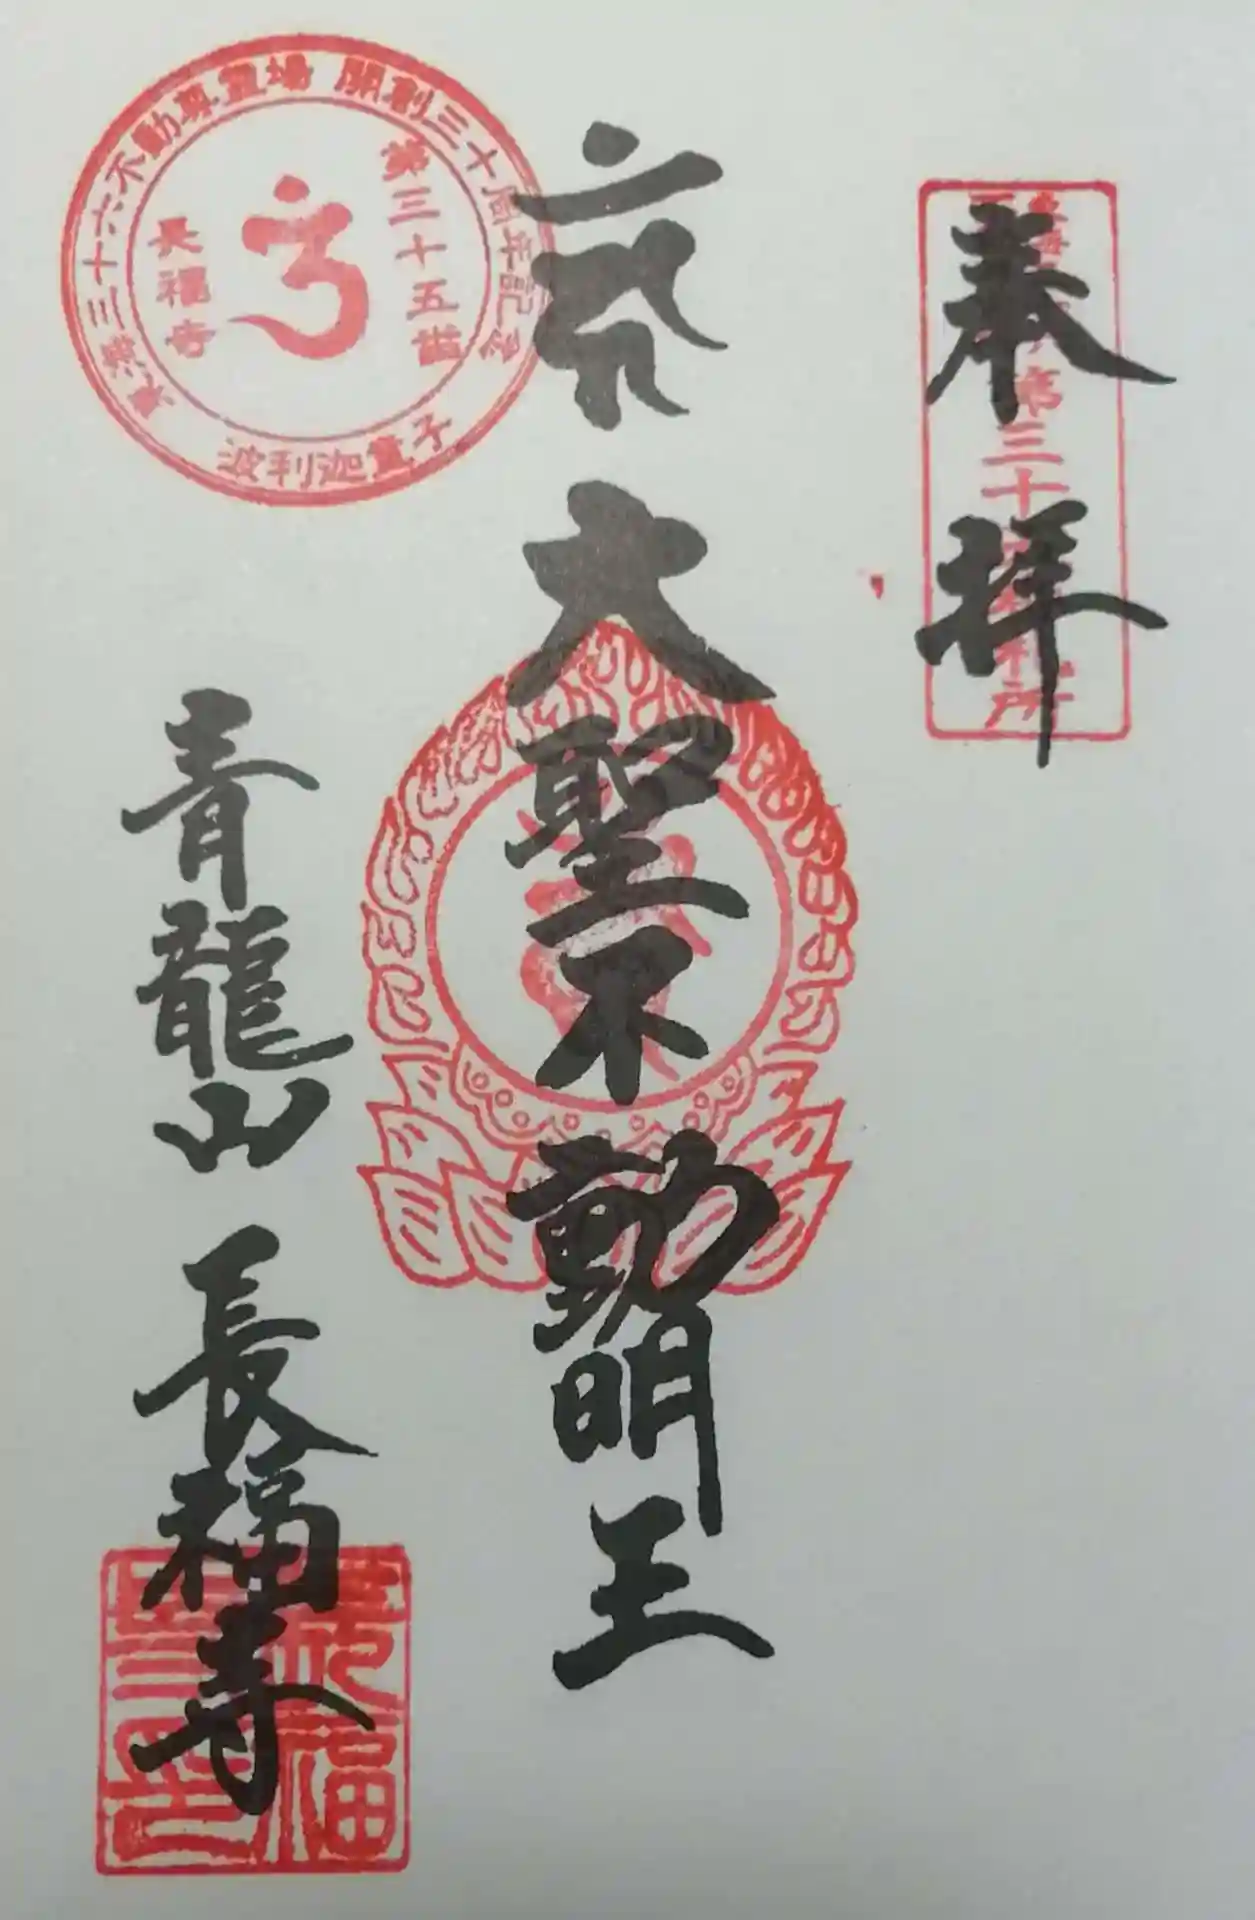 奉拝
大聖不動明王
青龍山 長福寺
東海三十六不動尊霊場 開創三十周年記念
第三十五番
長福寺
波利迦童子